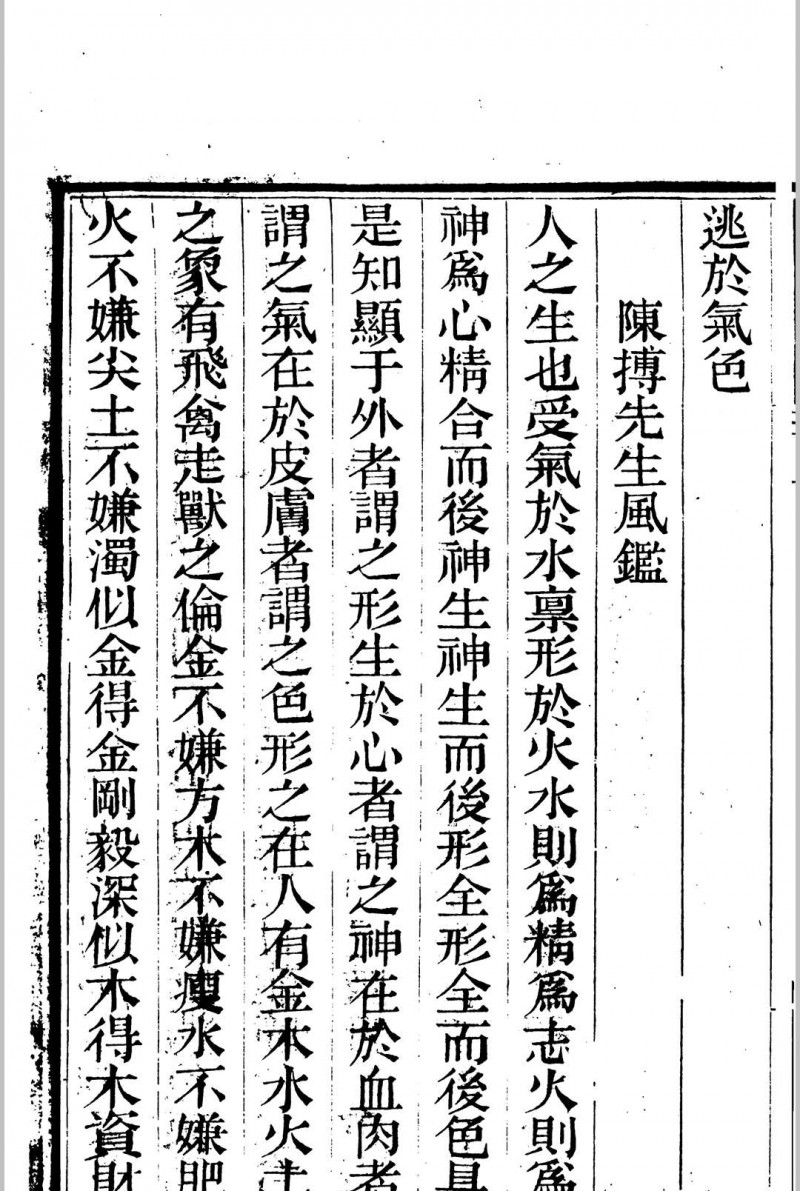 逃於氣色
陳摶先生風鑑
人之生也受氣於水禀形於火水則爲精爲志火則爲
神爲心精合而後神生神生而後形全形全而後色具
是知顯于外者謂之形生於心者謂之神在於血肉者
謂之氣在於皮膚者謂之色形之在人有金木水火土
之象有飛禽走獸之倫金不嫌方木不嫌瘦水不嫌肥
火不嫌尖土不嫌濁似金得金剛毅深似木得木資財